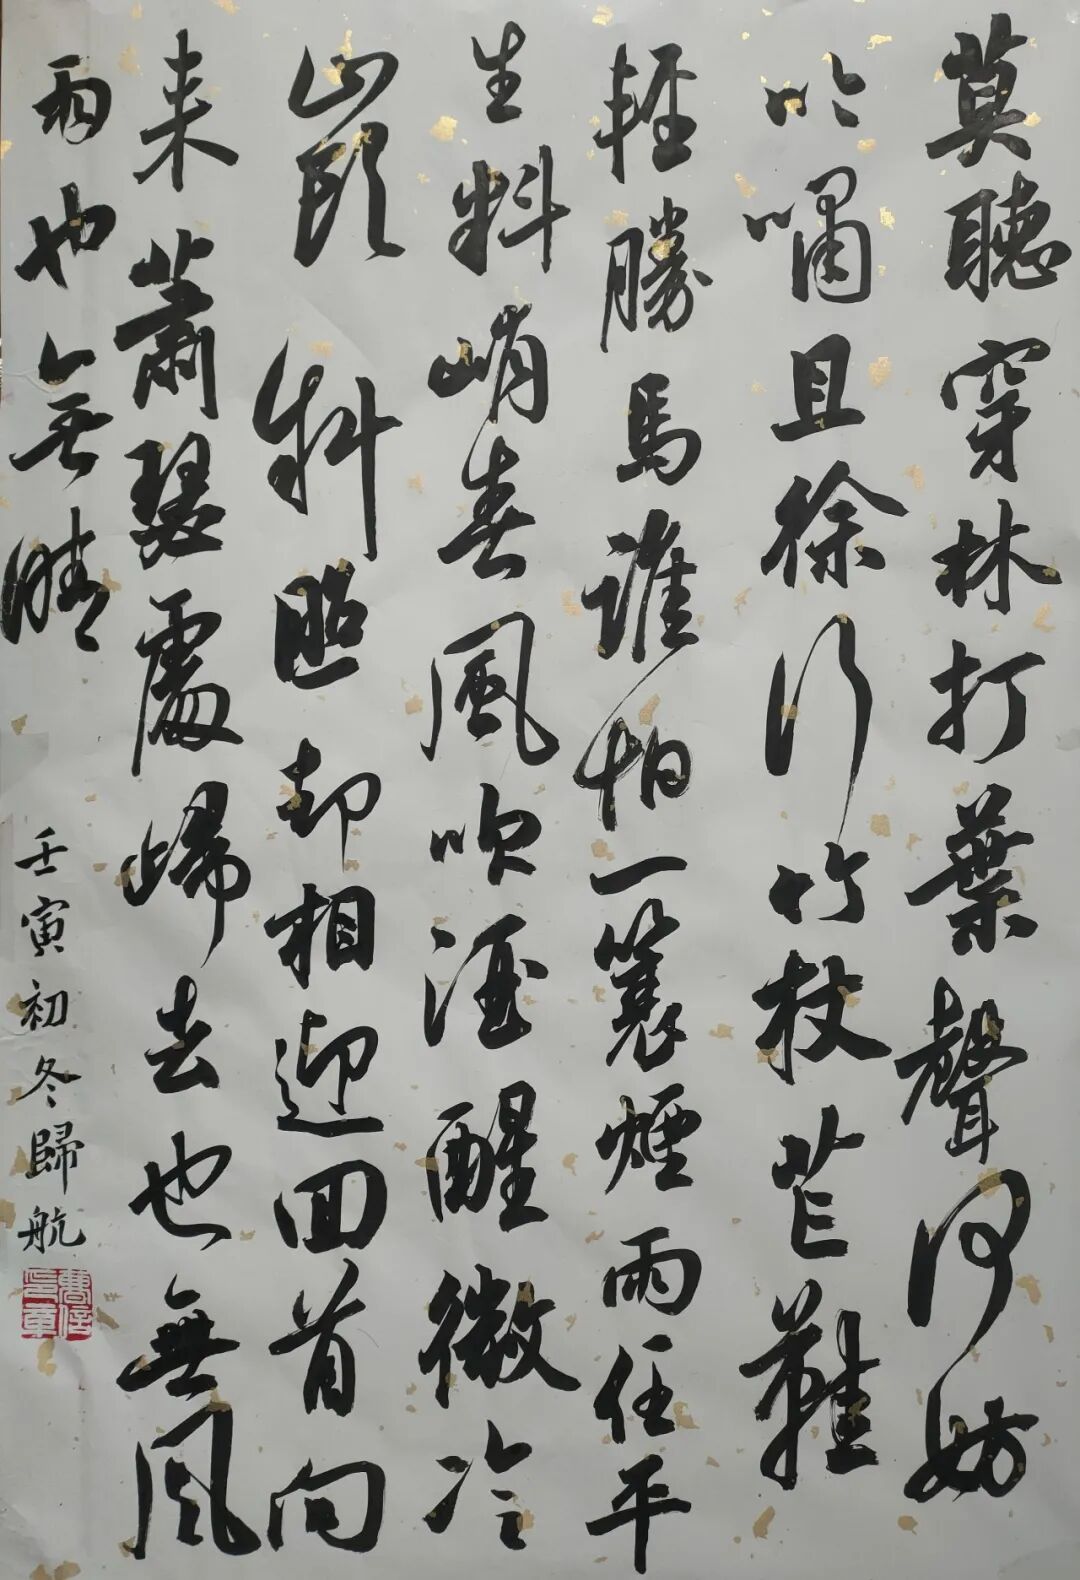 莫聽穿林打葉聲何妨
吟嘯且徐行竹杖芒鞋
輕勝馬誰怕一簑煙雨任平
生料峭春風吹酒醒微冷
山頭斜照却相迎回首向
来蕭瑟處歸去也無風
雨也無晴
壬寅初冬歸航